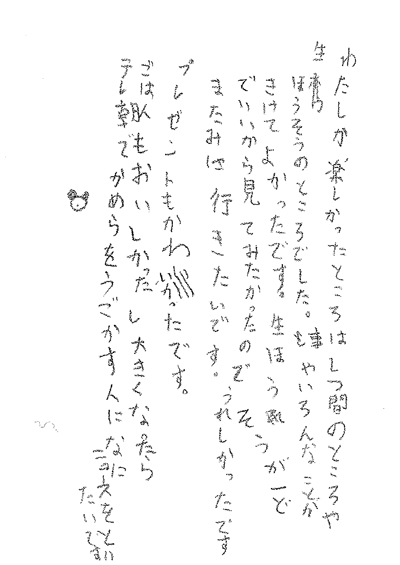 わたしが楽しかったところはしつ間のところや
生ほうそうのところでした。事やいろんなことが
きけてよかったです。生ほうそうが一ど
でいいから見てみたかったのでうれしかったです
またみは行きたいです。
プレゼントもかわいかったです。
ごはんもおいしかったし大きくなったら
テレ朝でかめらをうごかす人になに
ニュースをとり
たいです